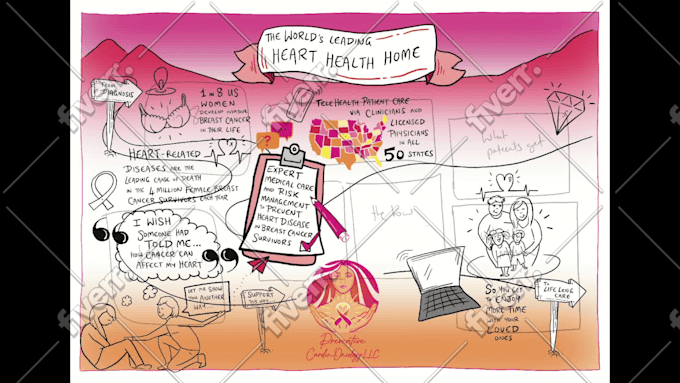 THE WORLD'S LEADING
HEART HEALTH HOME
FROM
DIAGNOSIS
1 IN 8 US
WOMEN
DEVELOP INVASIVE
BREAST CANCER
IN THEIR LIFE
TELEHEALTH PATIENT CARE
VIA CLINICIANS AND
LICENSED
PHYSICIANS
IN ALL
50 STATES
?
What
patients get
HEART-RELATED
DISEASES ARE THE
LEADING CAUSE OF DEATH
IN THE 4 MILLION FEMALE BREAST
CANCER SURVIVORS EACH YEAR
EXPERT
MEDICAL CARE
AND RISK
MANAGEMENT
TO PREVENT
HEART DISEASE
IN BREAST CANCER
SURVIVORS
the How
I WISH
SOMEONE HAD
TOLD ME...
HOW CANCER CAN
AFFECT MY HEART
LET ME SHOW
YOU ANOTHER
WAY
SUPPORT
Preventive
Cardio-Oncology, LLC
SO YOU GET
TO ENJOY
MORE TIME
WITH YOUR
LOVED
ONES
TO
LIFE LONG
CARE
fiverr.